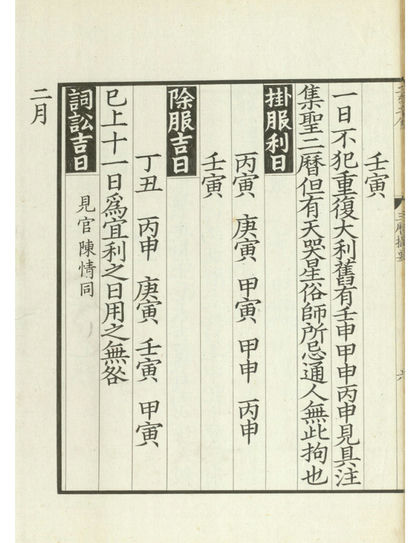 壬寅
一日不犯重復大利舊有壬申甲申丙申見具注
集聖二曆但有天哭星俗師所忌通人無此拘也
掛服利日
丙寅 庚寅 甲寅 甲申 丙申
壬寅
除服吉日
丁丑 丙申 庚寅 壬寅 甲寅
巳上十一日爲宜利之日用之無咎
詞訟吉日 見官陳情同
二月